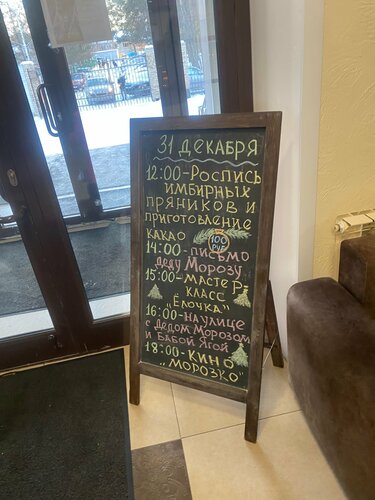 31 ДЕКАБРЯ
12:00-РОСПИСЬ
ИМБИРНЫХ
ПРЯНИКОВ И
ПРИГОТОВЛЕНИЕ
КАКАО 100 РУБ
14:00-ПИСЬМО
ДЕДУ МОРОЗУ
15:00-МАСТЕР-
КЛАСС
"ЁЛОЧКА"
16:00-НА УЛИЦЕ
С ДЕДОМ МОРОЗОМ
И БАБОЙ ЯГОЙ
18:00-КИНО
"МОРОЗКО"